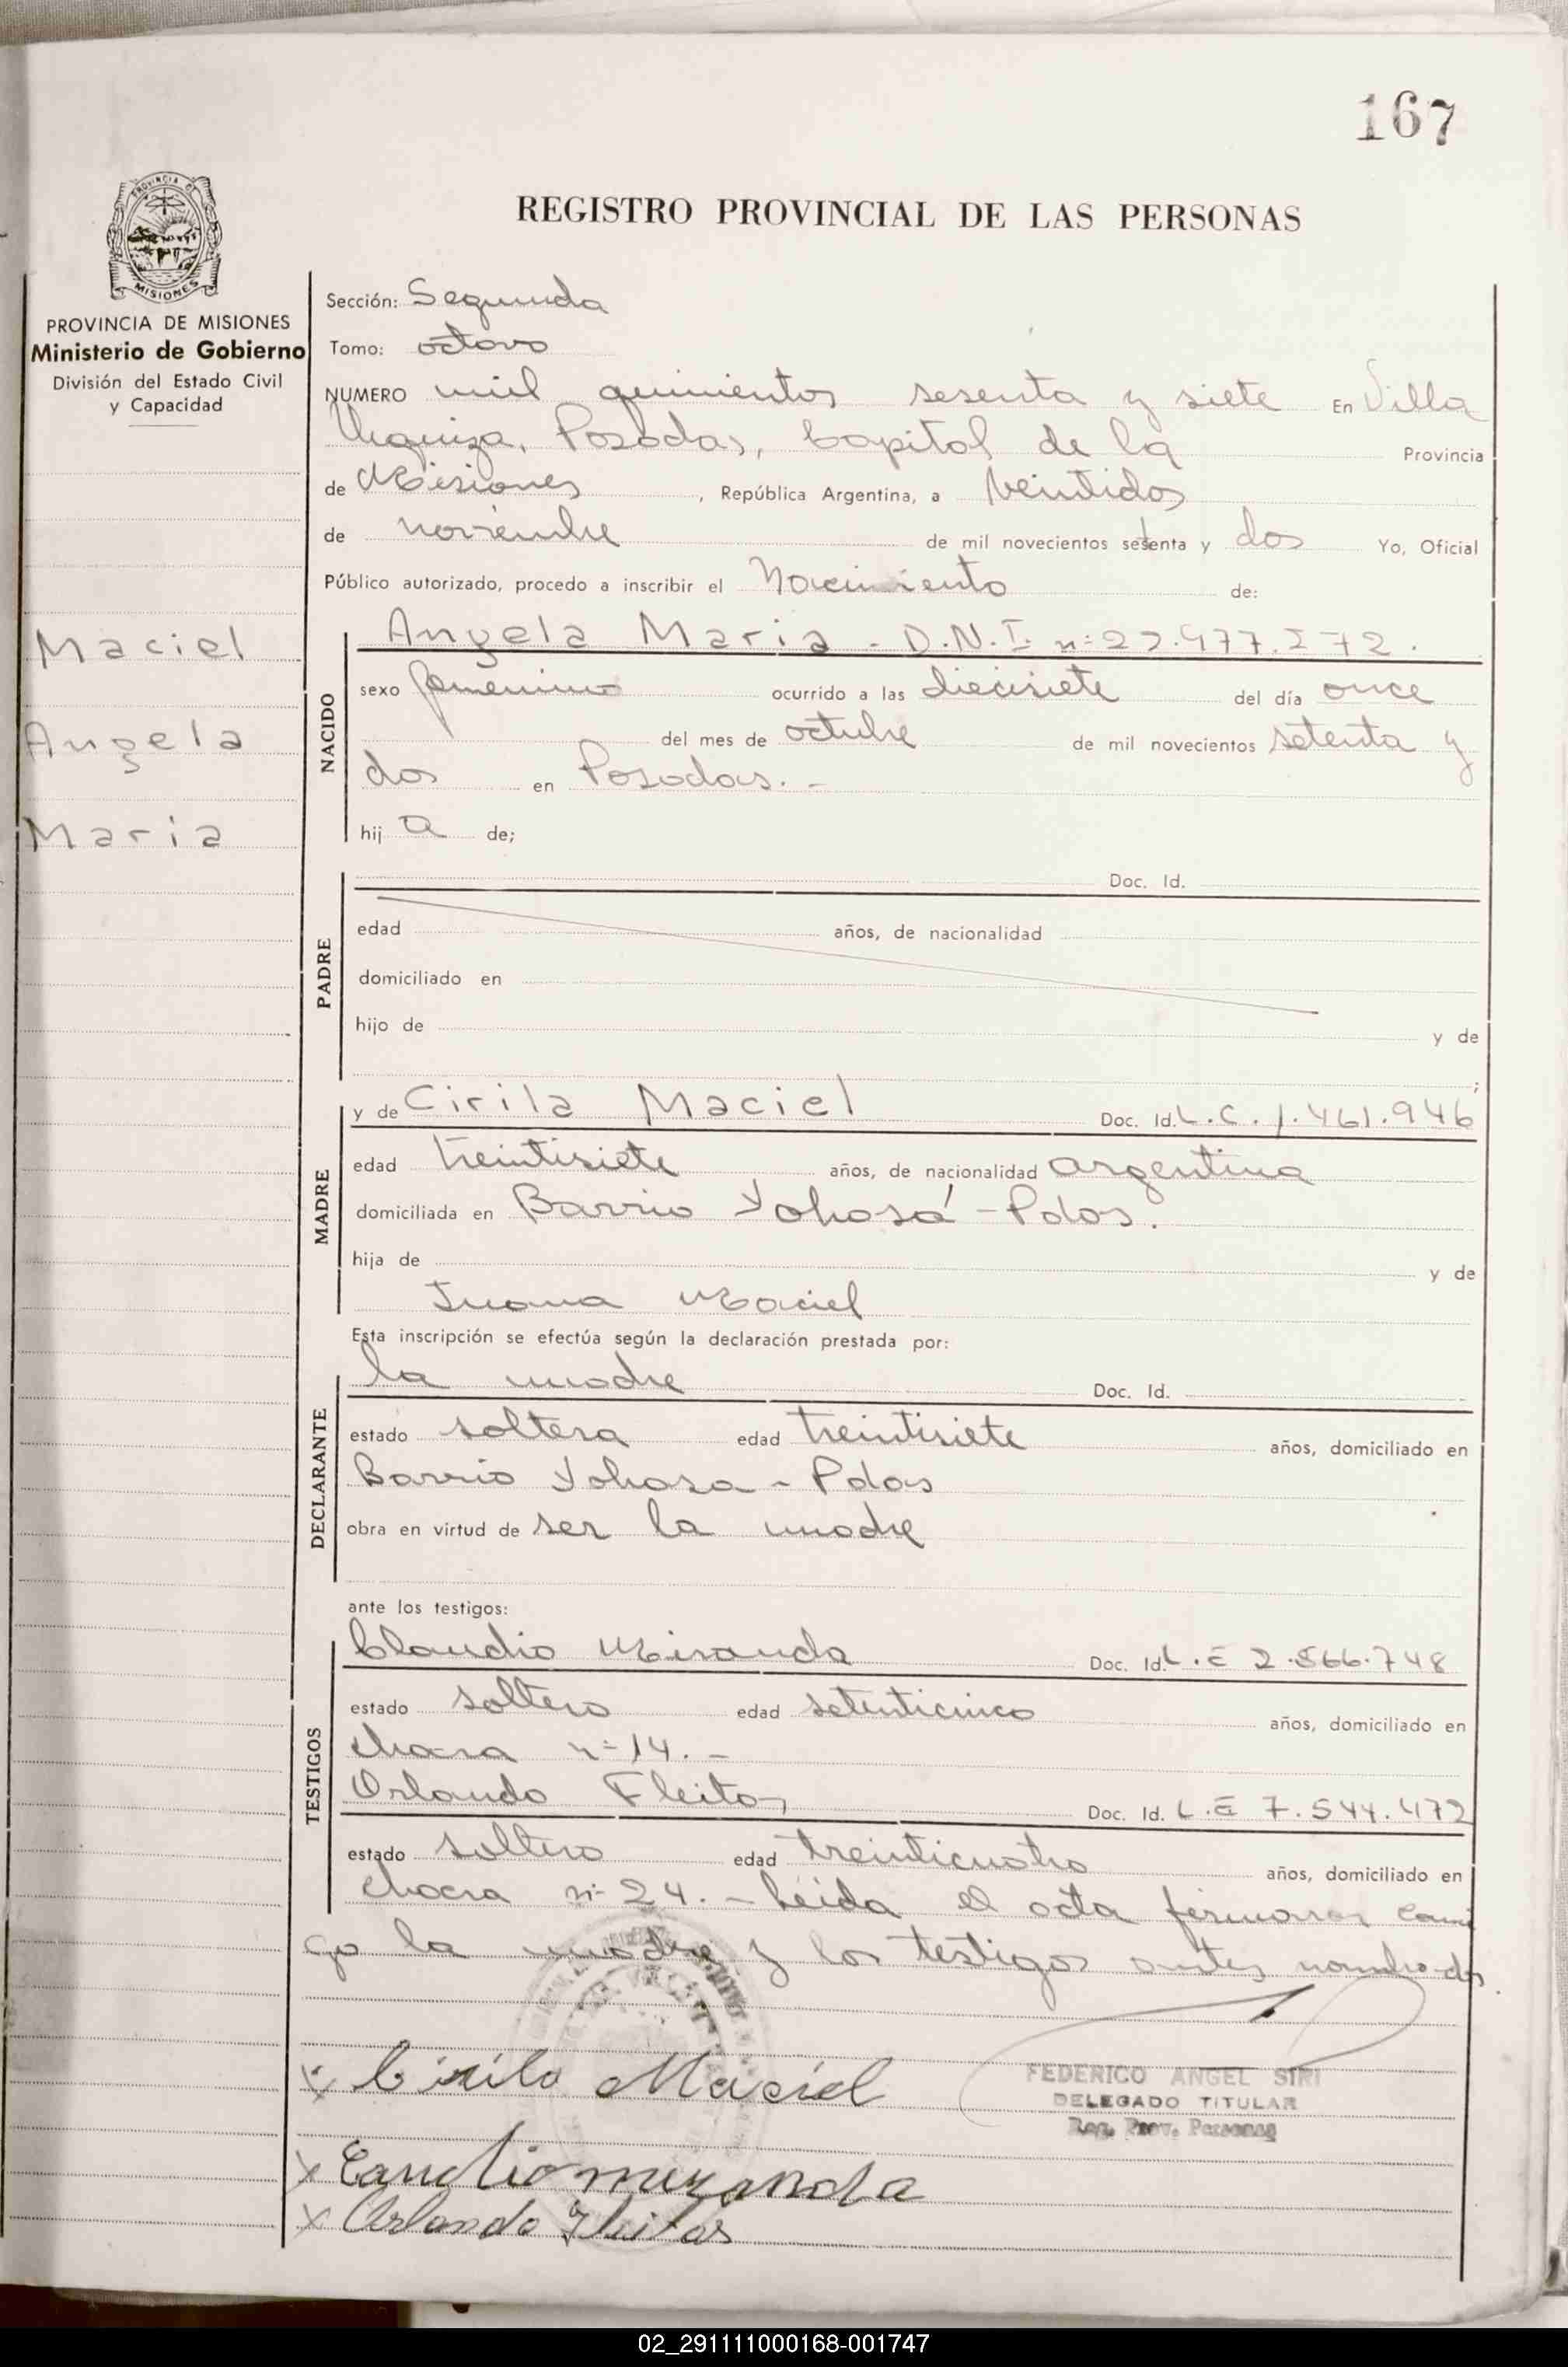 167
REGISTRO PROVINCIAL DE LAS PERSONAS
PROVINCIA DE MISIONES
MISIONES
PROVINCIA DE MISIONES
Ministerio de Gobierno
División del Estado Civil
y Capacidad
Maciel
Angela
Maria
Sección: Segunda
Tomo: octavo
NUMERO mil quinientos sesenta y siete En Villa
Urquiza, Posadas, Capital de la Provincia
de Misiones, República Argentina, a veintidos
de noviembre de mil novecientos setenta y dos Yo, Oficial
Público autorizado, procedo a inscribir el Nacimiento de:
NACIDO
Angela Maria - D.N.I. nº
sexo femenino ocurrido a las diecisiete del día once
del mes de octubre de mil novecientos setenta y
dos en Posadas. -
hij a de;
PADRE
Doc. Id.
edad años, de nacionalidad
domiciliado en
hijo de y de
;
MADRE
y de Cirila Maciel Doc. Id. L.C. 1.461.946
edad treintisiete años, de nacionalidad argentina
domiciliada en Barrio Yohasá - Pdas.
hija de y de
Juana Maciel
Esta inscripción se efectúa según la declaración prestada por:
DECLARANTE
la madre Doc. Id.
estado soltera edad treintisiete años, domiciliado en
Barrio Yohasa - Pdas
obra en virtud de ser la madre
ante los testigos:
TESTIGOS
Claudio Miranda Doc. Id. L.E 2.566.748
estado soltero edad setenticinco años, domiciliado en
chacra nº 14. -
Orlando Fleitas Doc. Id. L.E 7.544.472
estado soltero edad treinticuatro años, domiciliado en
chacra nº 24. - Leida el acta firmaron conmi
go la madre y los testigos antes nombrados.
x Cirila Maciel
FEDERICO ANGEL SIRI
DELEGADO TITULAR
Reg. Prov. Personas
x Claudio miranda
x Orlando Fleitas
02_291111000168-001747